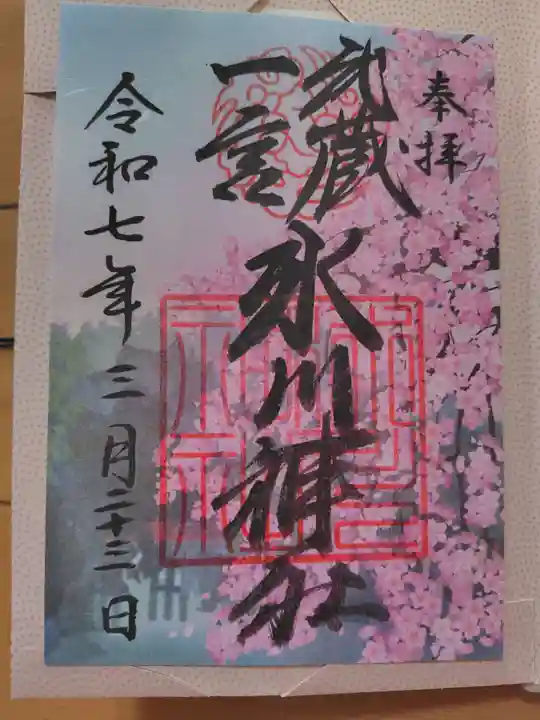 奉拝
武蔵
一言
氷川神社
令和七年三月二十三日